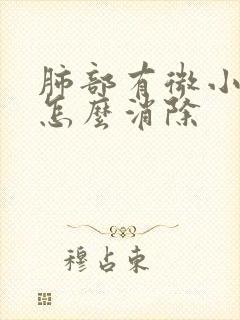 肺部有微小
怎麼消除
穆占東